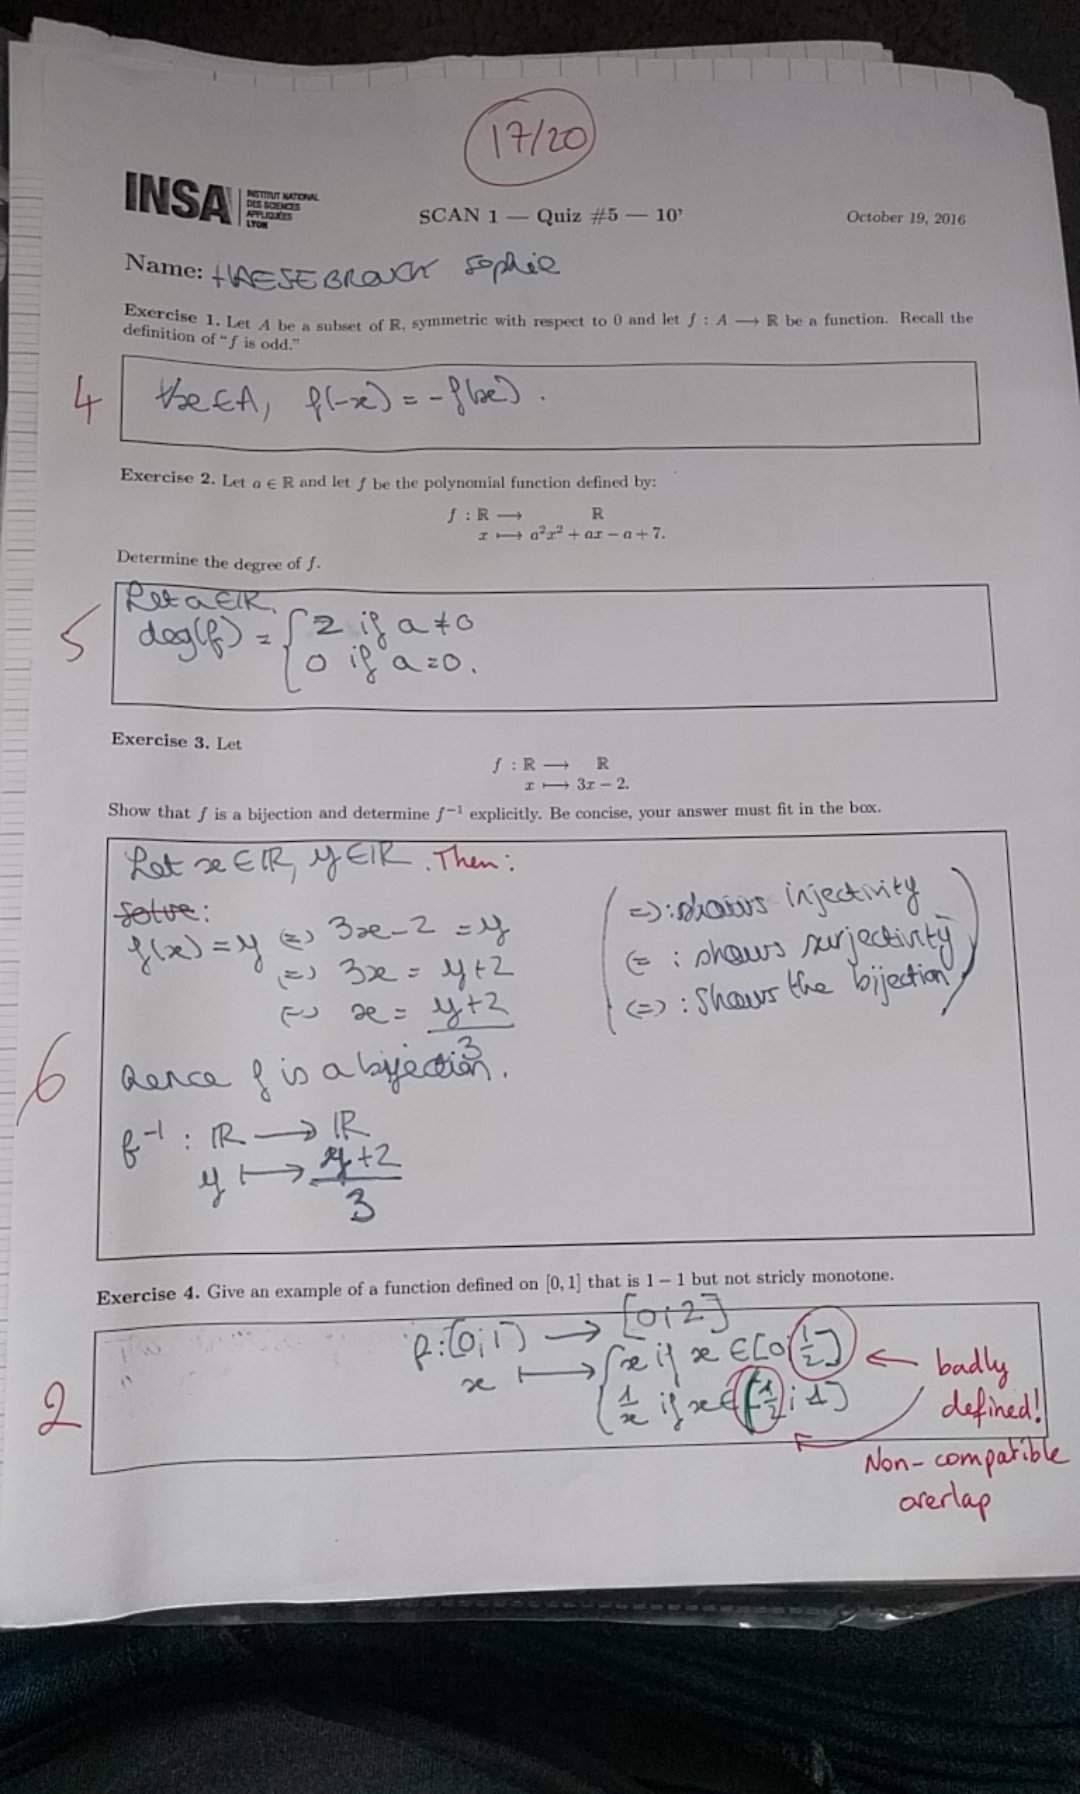 17/20
INSA INSTITUT NATIONAL
DES SCIENCES
APPLIQUÉES
LYON
SCAN 1 — Quiz #5 — 10'
October 19, 2016
Name: HAESEBROUCK Sophie
Exercise 1. Let A be a subset of ℝ, symmetric with respect to 0 and let f : A ⟶ ℝ be a function. Recall the
definition of "f is odd."
4
∀x∈A, f(-x) = -f(x).
Exercise 2. Let a ∈ ℝ and let f be the polynomial function defined by:
f : ℝ ⟶ ℝ
x ⟼ a²x² + ax − a + 7.
Determine the degree of f.
5
Let a∈ℝ.
deg(f) = { 2 if a ≠ 0
0 if a = 0.
Exercise 3. Let
f : ℝ ⟶ ℝ
x ⟼ 3x − 2.
Show that f is a bijection and determine f⁻¹ explicitly. Be concise, your answer must fit in the box.
6
Let x∈ℝ, y∈ℝ. Then:
Solve:
f(x) = y ⇔ 3x-2 = y
⇔ 3x = y+2
⇔ x = (y+2)/3
(⇒: shows injectivity
⇐ : shows surjectivity
⇔ : shows the bijection)
Hence f is a bijection.
f⁻¹ : ℝ ⟶ ℝ
y ⟼ (y+2)/3
Exercise 4. Give an example of a function defined on [0, 1] that is 1 − 1 but not stricly monotone.
2
f:[0;1] ⟶ [0;2]
x ⟼ { x if x ∈ [0;1/2]
1/x if x ∈ [1/2;1]
badly
defined!
Non-compatible
overlap